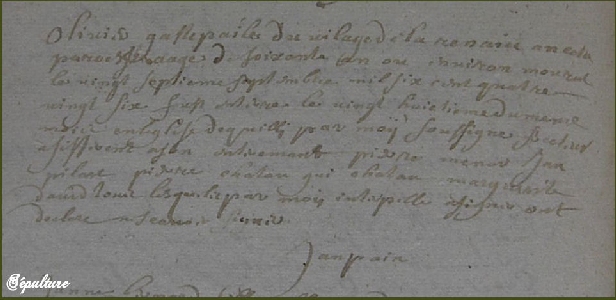 Olivier gastepaille du vilage de la renaiee an cette
paroesse aage de soizonte an ou environ mourut
le vingt septieme septembre mil six cent quatre
vingt six fust enterre le vingt huitieme du mesme
mois en leglise de quilli par moÿ soussigne Recteur
asisterent a son enterement pierre menor Jan
pilart pierre chatan gui chatan marguerite
david tous lesquels par moÿ interpelle signer ont
declare ne scavoir signer
Janpain
Sépulture